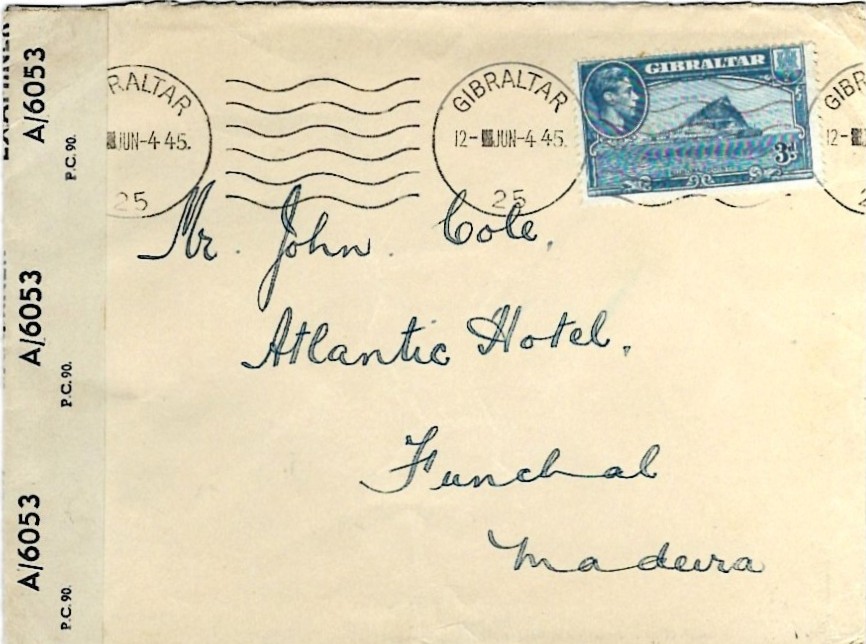 EXAMINER
A/6053
P.C. 90.
A/6053
P.C. 90.
A/6053
P.C. 90.
RALTAR
JUN-4 45.
25
GIBRALTAR
12- JUN-4 45.
25
GIBRALTAR
3d
GIBR
12-
Mr. John. Cole,
Atlantic Hotel,
Funchal
Madeira